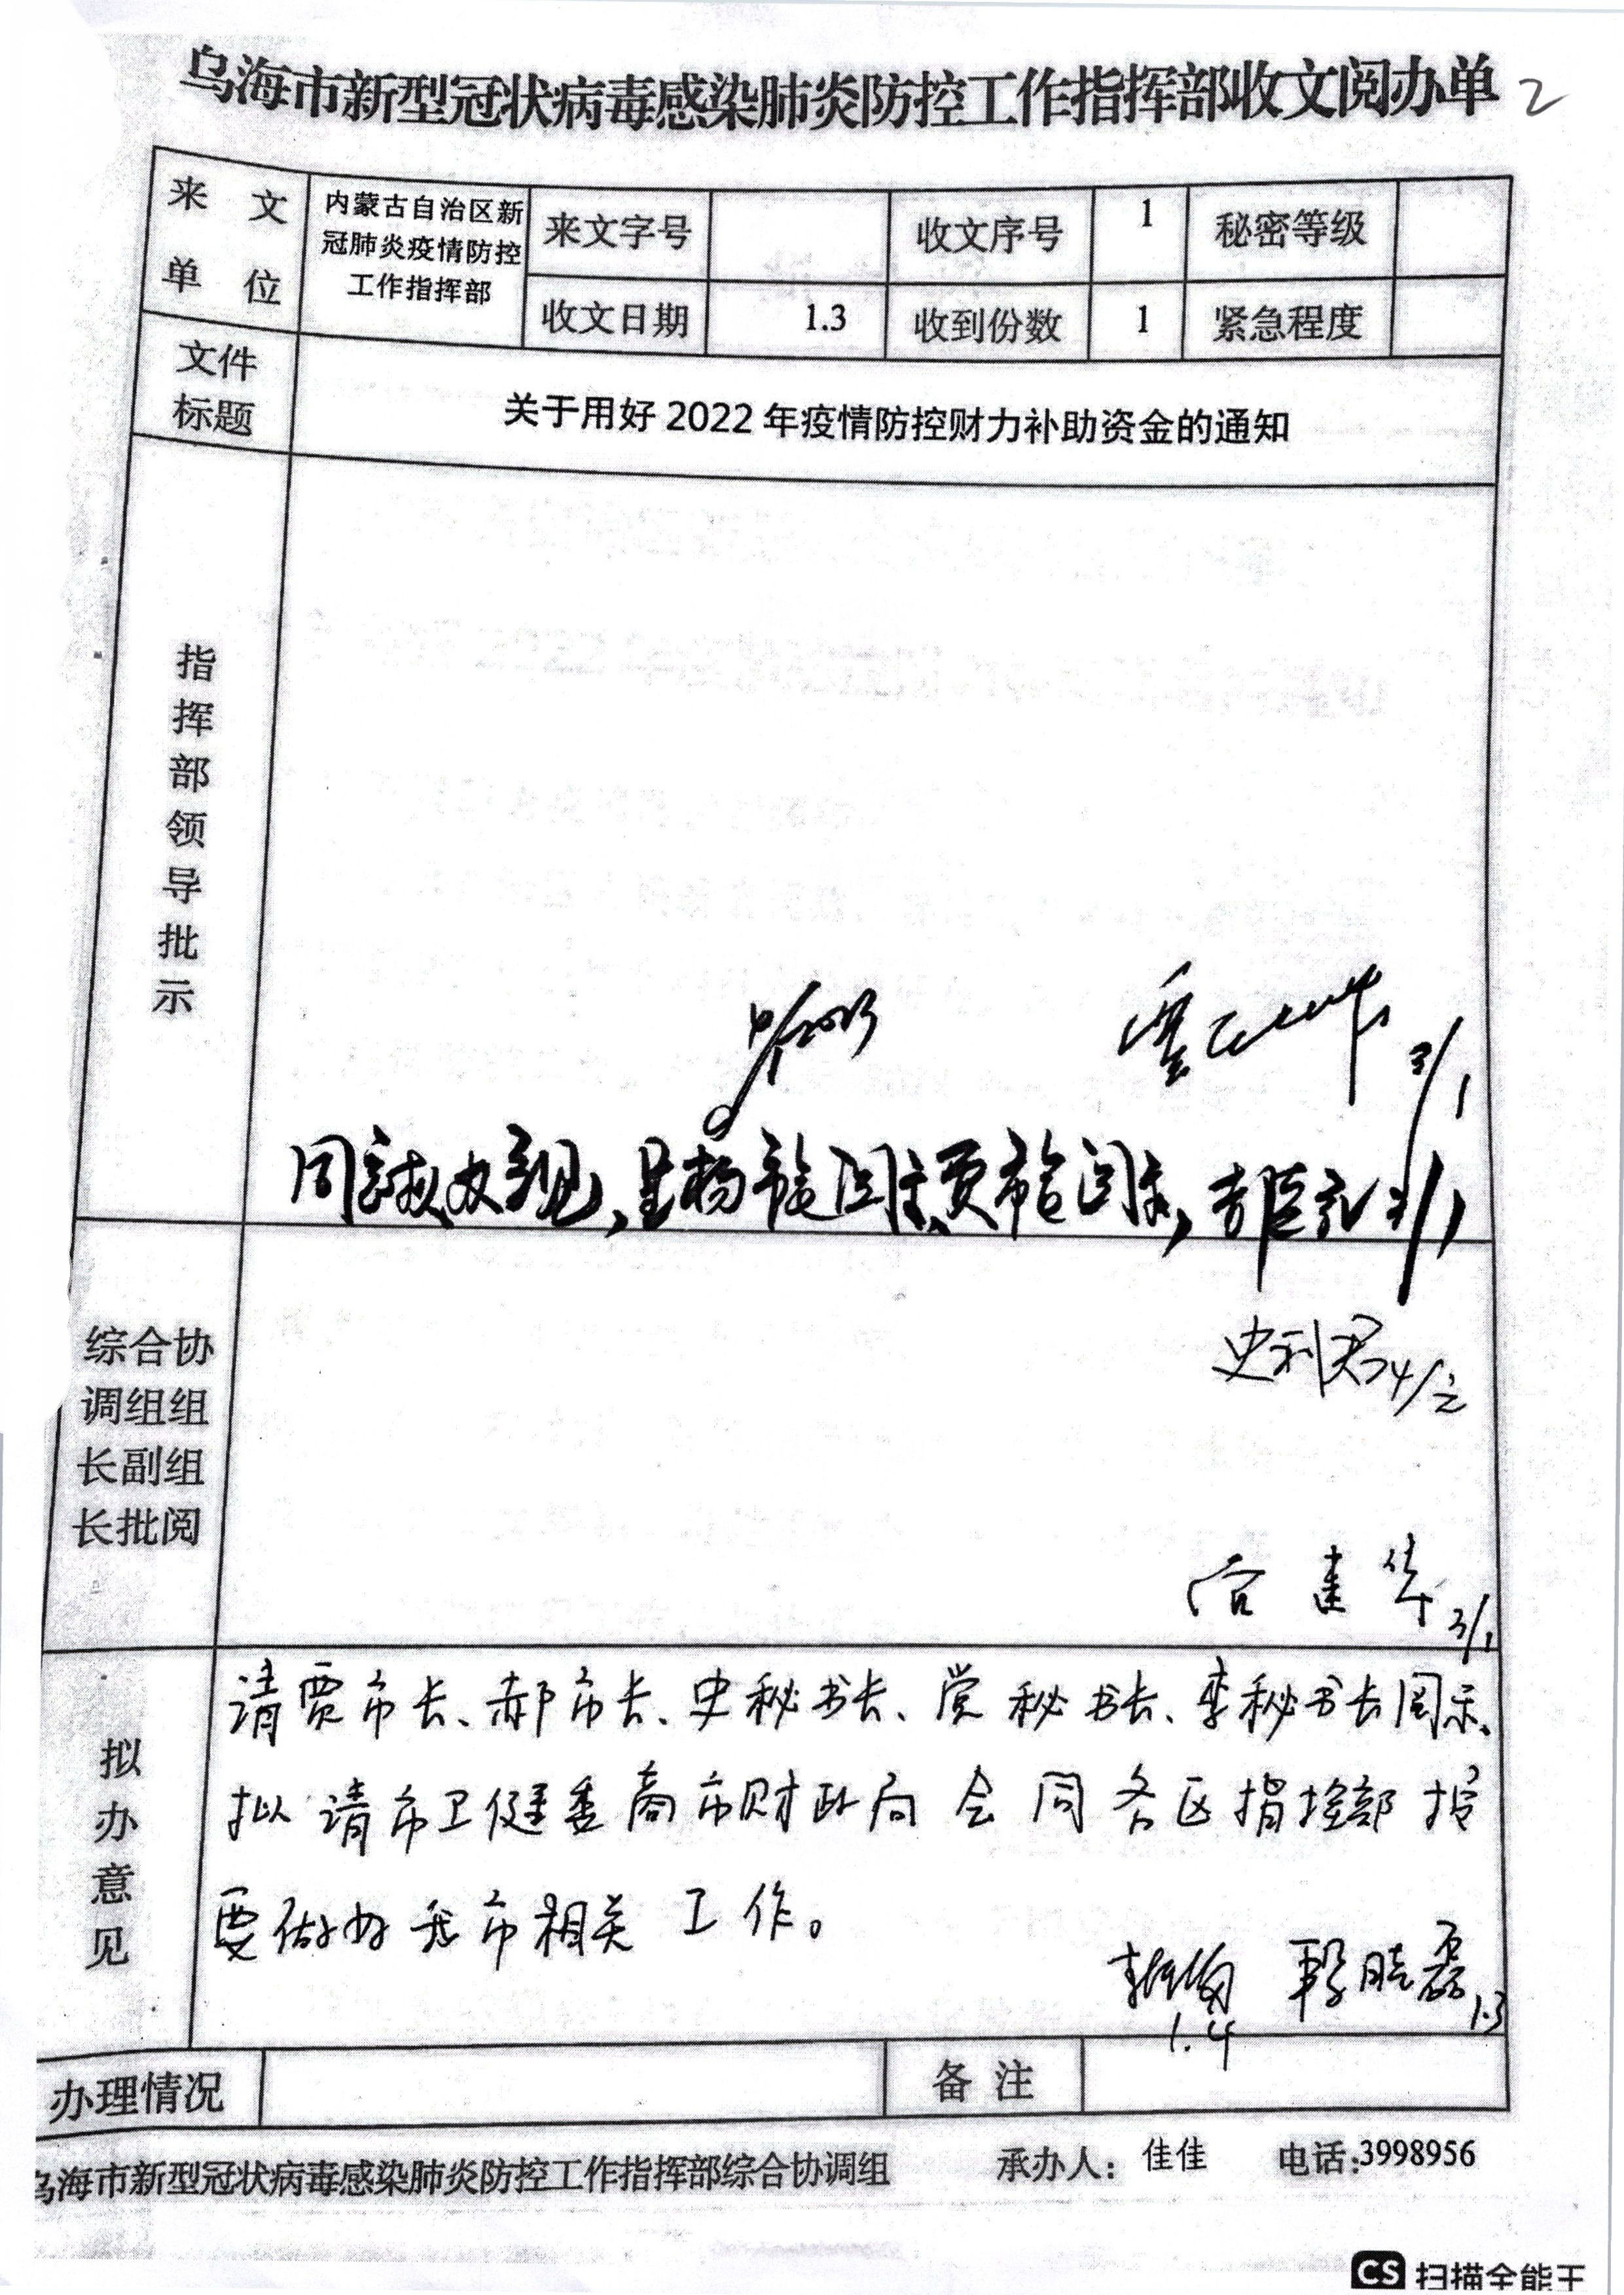 乌海市新型冠状病毒感染肺炎防控工作指挥部收文阅办单 2
来文单位
内蒙古自治区新
冠肺炎疫情防控
工作指挥部
来文字号
收文序号
1
秘密等级
收文日期
1.3
收到份数
1
紧急程度
文件
标题
关于用好2022年疫情防控财力补助资金的通知
指挥部领导批示
3/1
同意拟办意见,呈杨市长阅示,贾市长阅示, 3/1
综合协
调组组
长副组
长批阅
史利君 4/1
建华 3/1
拟办意见
请贾市长、郝市长、史秘书长、党秘书长、李秘书长阅示、
拟请市卫健委商市财政局会同各区指挥部按
要做好我市相关工作。
晓磊 1.3
1.4
办理情况
备注
乌海市新型冠状病毒感染肺炎防控工作指挥部综合协调组
承办人: 佳佳
电话:3998956
CS 扫描全能王